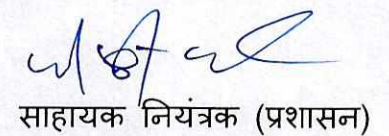 साहायक नियंत्रक (प्रशासन)